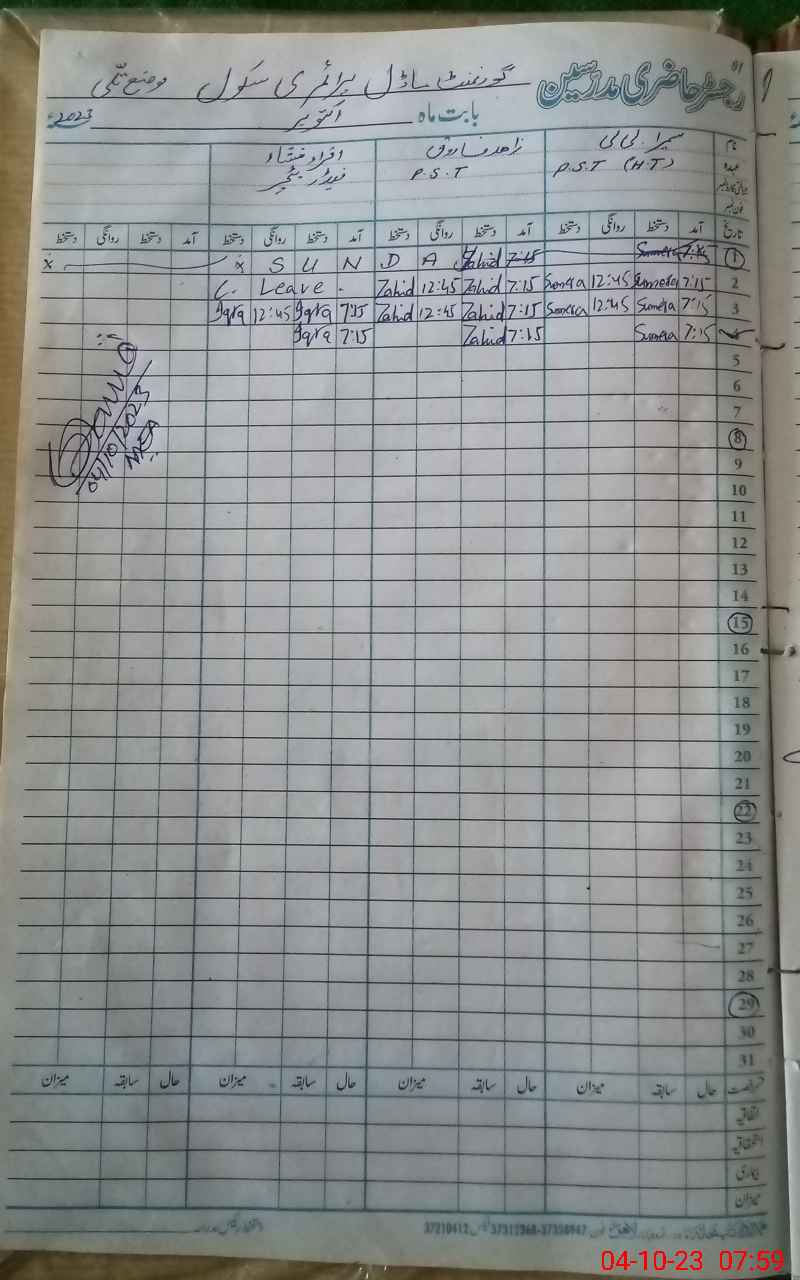 رجسٹر حاضری مدرسین گورنمنٹ ماڈل پرائمری سکول موضع
بابت ماہ اکتوبر 2023ء
نام سمیرا بی بی زاھد فاروق اقراء
عہدہ P.S.T (H.T) P.S.T
تاریخ آمد دستخط روانگی دستخط آمد دستخط روانگی دستخط آمد دستخط روانگی دستخط آمد دستخط روانگی دستخط
1 7:15 Sumera 7:15 Zahid S U N D A
2 7:15 Sumera 12:45 Sumera 7:15 Zahid 12:45 Zahid C. Leave.
3 7:15 Sumera 12:45 Sumera 7:15 Zahid 12:45 Zahid 7:15 Iqra 12:45 Iqra
4 7:15 Sumera 7:15 Zahid 7:15 Iqra
5
6
7
8
9
10
11
12
13
14
15
16
17
18
19
20
21
22
23
24
25
26
27
28
29
30
31
04/10/2023
MEA
رخصت حال سابقہ میزان حال سابقہ میزان حال سابقہ میزان حال سابقہ میزان
اتفاقیہ
استحقاقیہ
بیماری
میزان
37210412
04-10-23 07:59